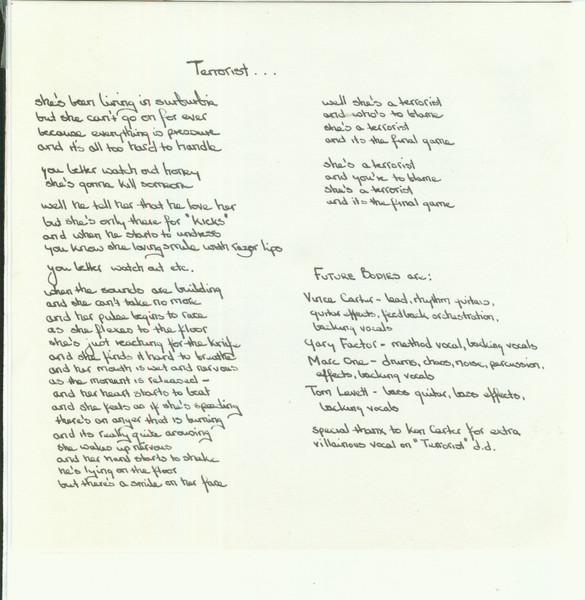 Terrorist...
she's been living in surburbia
but she can't go on for ever
because everything is pressure
and it's all too hard to handle
you better watch out honey
she's gonna kill someone
well he tell her that he love her
but she's only there for "kicks"
and when he starts to undress
you know she loving smile with razor lips
you better watch out etc.
when the sounds are building
and she can't take no more
and her pulse begins to race
as she flexes to the floor
she's just reaching for the knife
and she finds it hard to breathe
and her mouth is wet and nervous
as the moment is released -
and her heart starts to beat
and she feels as if she's speeding
there's an anger that is burning
and its really quite arousing
she wakes up nervous
and her hand starts to shake
he's lying on the floor
but there's a smile on her face
well she's a terrorist
and who's to blame
she's a terrorist
and its the final game
she's a terrorist
and you're to blame
she's a terrorist
and its the final game
Future Bodies are:
Vince Carter - lead, rhythm guitars,
guitar effects, feedback orchestration,
backing vocals
Gary Factor - method vocal, backing vocals
Marc One - drums, chaos, noise, percussion,
effects, backing vocals
Tom Lavett - bass guitar, bass effects,
backing vocals
special thanx to Ken Carter for extra
villainous vocal on "Terrorist" d.d.